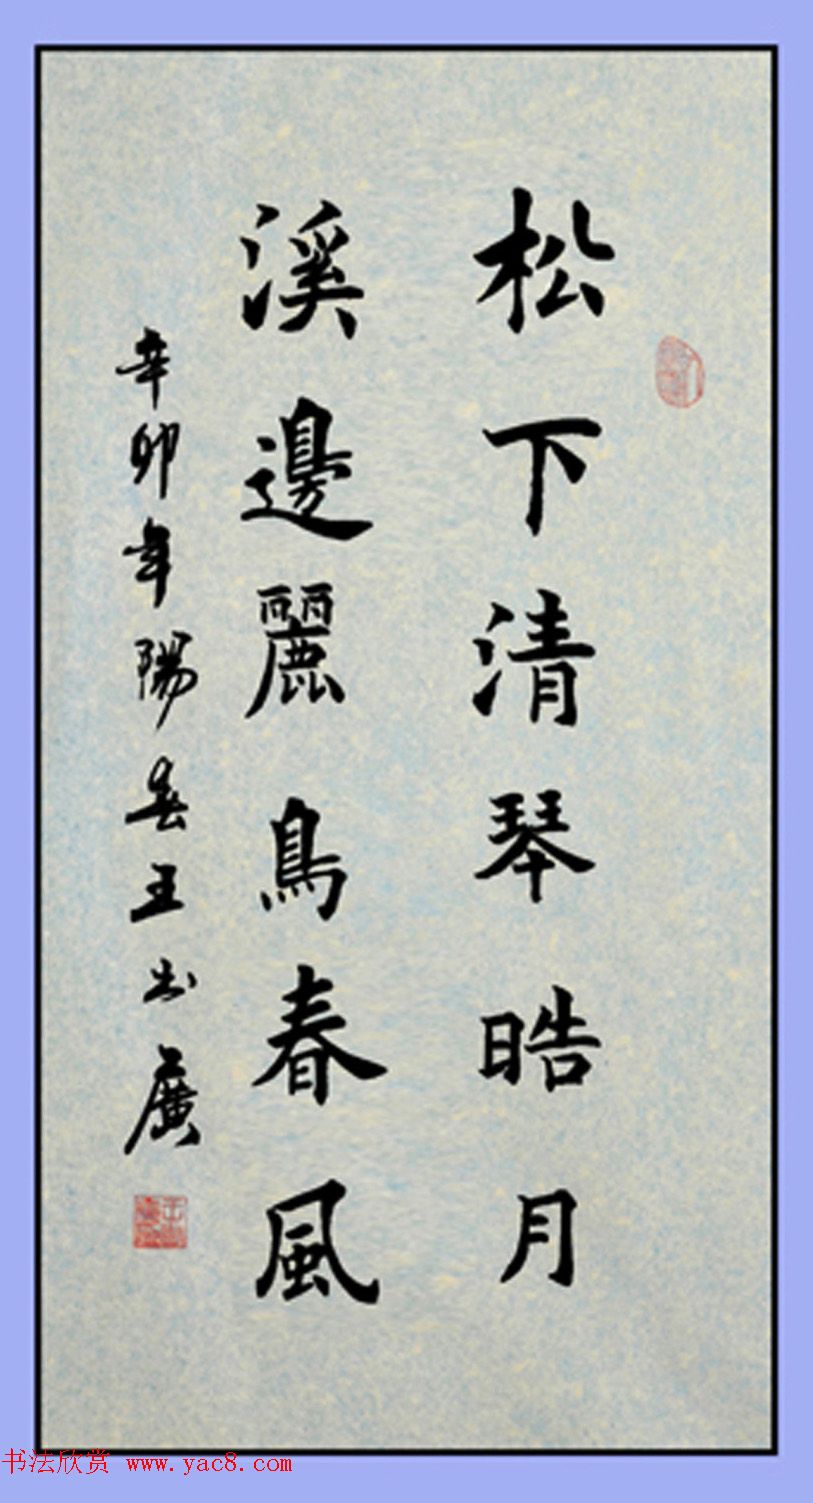 松下清琴晧月
溪邊麗鳥春風
辛卯年陽春王出廣
书法欣赏 www.yac8.com